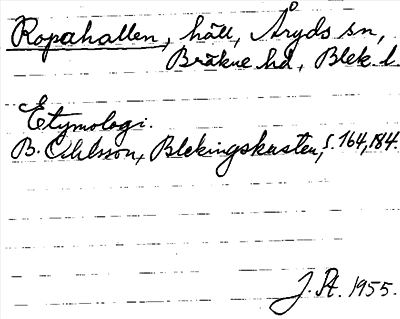 Ropahallen, håll, Åryds sn,
Bräkne hd, Blek. l.
Etymologi.
B. Ohlsson, Blekingskusten, s. 164, 184.
J. 1955.